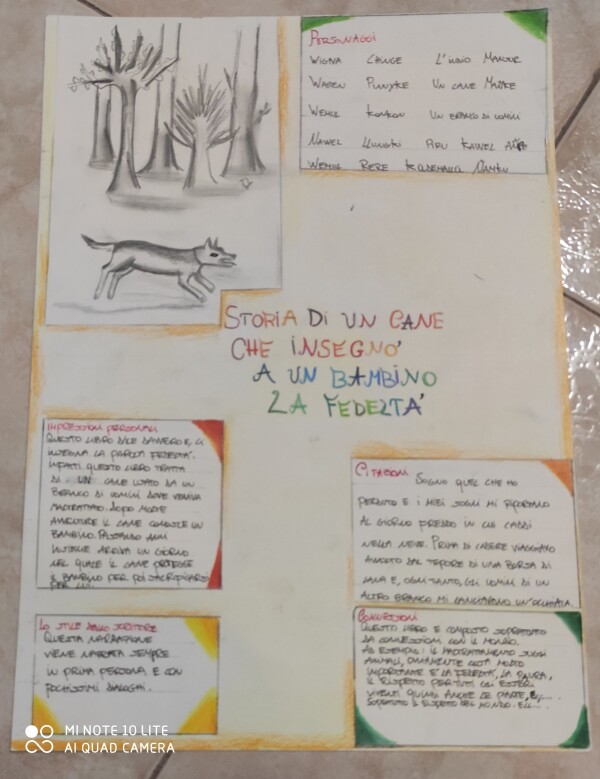 PERSONAGGI
WIGNA CHINGE L'INDIO MAPUCHE
WAREN
UN CANE
WENUL UN BRANCO DI UOMINI
NAWEL KAWEL
WENUL
STORIA DI UN CANE
CHE INSEGNO'
A UN BAMBINO
LA FEDELTA'
IMPRESSIONI PERSONALI
QUESTO LIBRO DAVVERO E CI
INSEGNA LA PAROLA FEDELTA'.
INFATTI QUESTO LIBRO TRATTA
DI UN CANE DA UN
BRANCO DI UOMINI DOVE VENIVA
MALTRATTATO. DOPO MOLTE
AVVENTURE IL CANE CONOSCE UN
BAMBINO. PASSANO ANNI
ARRIVA UN GIORNO
NEL QUALE IL CANE PROTEGGE
IL BAMBINO PER POI SACRIFICARSI
PER LUI.
CITAZIONI
SOGNO QUEL CHE HO
PERDUTO E I MIEI SOGNI MI RIPORTANO
AL GIORNO FREDDO IN CUI CADDI
NELLA NEVE. PRIMA DI CADERE VIAGGIAVO
AVVOLTO DAL TEPORE DI UNA BORSA DI
LANA E, OGNI TANTO, GLI UOMINI DI UN
ALTRO BRANCO MI LANCIAVANO UN'OCCHIATA.
LO STILE DELLO SCRITTORE
QUESTA NARRAZIONE
VIENE NARRATA SEMPRE
IN PRIMA PERSONA E CON
POCHISSIMI DIALOGHI.
CONNESSIONI
QUESTO LIBRO E COMPOSTO SOPRATTUTTO
DA CONNESSIONI CON IL MONDO.
AD ESEMPIO: IL MALTRATTAMENTO SUGLI
ANIMALI, OVVIAMENTE COSA MOLTO
IMPORTANTE E LA FEDELTA', LA PAURA,
IL RISPETTO PER TUTTI GLI ESSERI
VIVENTI QUINDI ANCHE LE PIANTE,
SOPRATTUTTO IL RISPETTO DEL MONDO. ECC....
MI NOTE 10 LITE
AI QUAD CAMERA